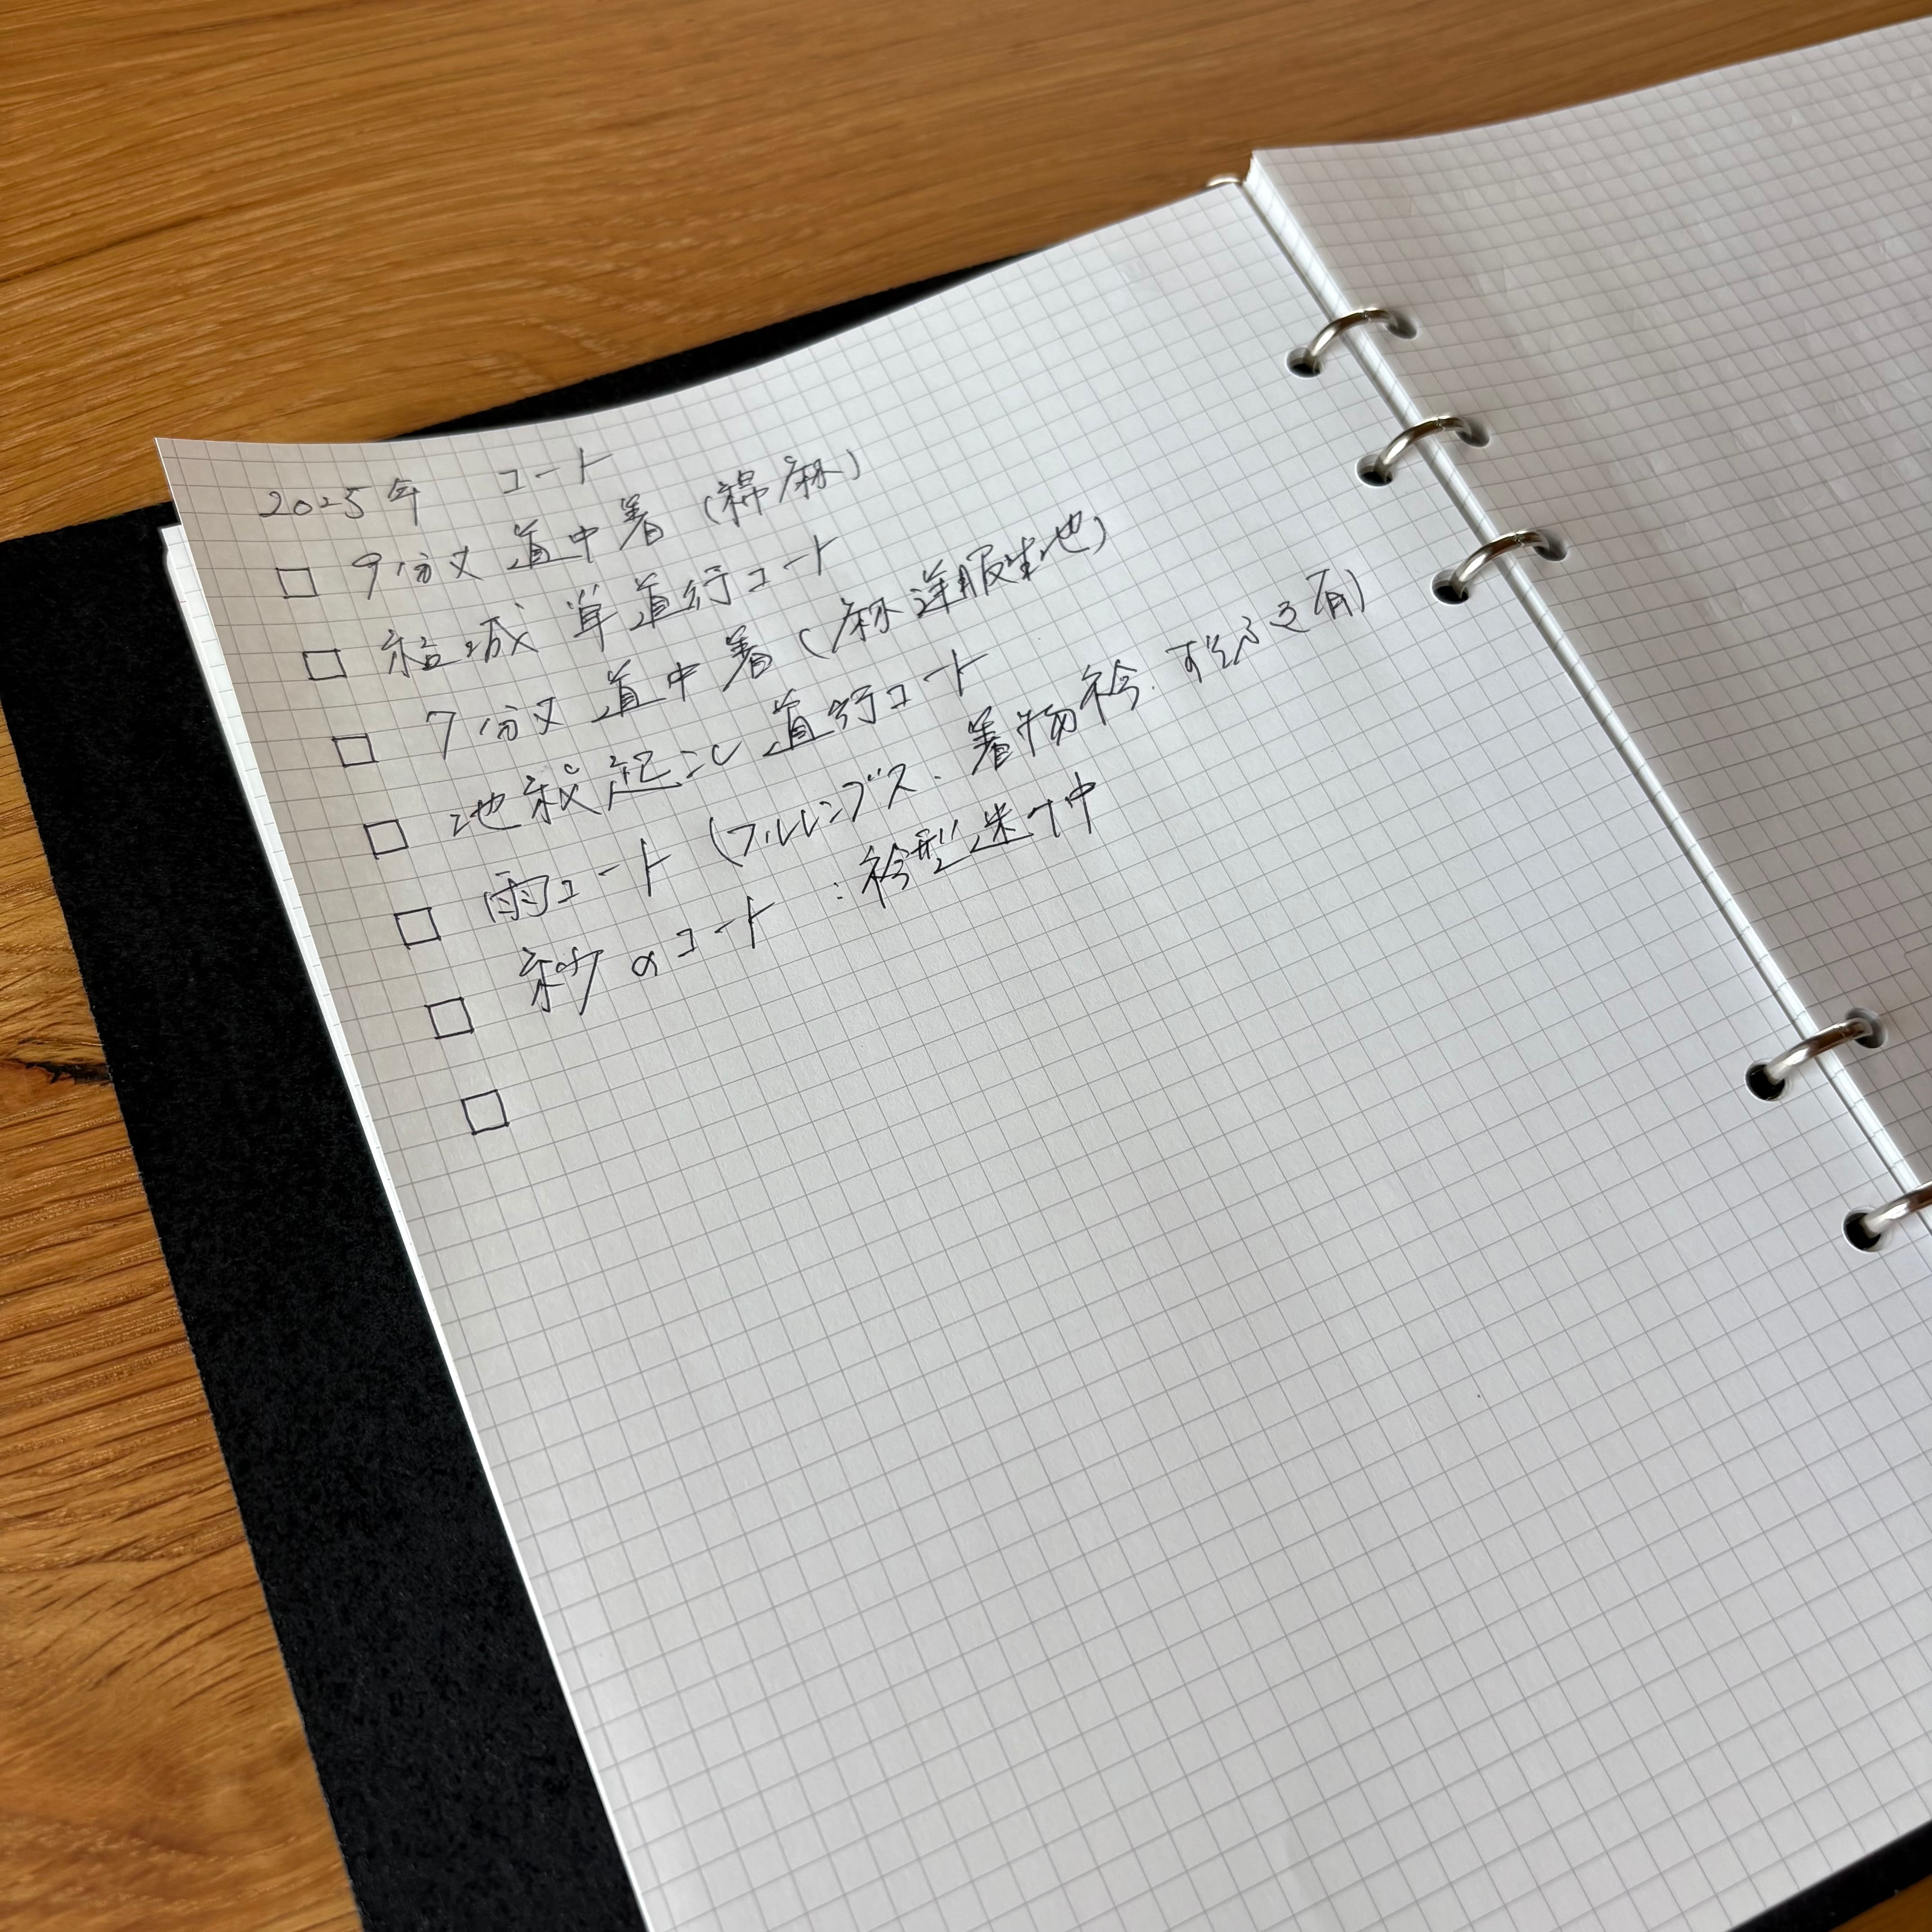 2025年 コート
□ 9分丈 道中着 (綿麻)
□ 結城 単道行コート
□ 7分丈 道中着 (麻洋服生地)
□ 地紋起こし 道行コート
□ 雨コート (フルレングス、着物衿、すくいぶき有)
□ 紗のコート:衿型迷い中
□